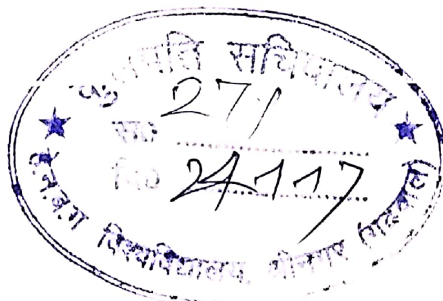 कुलपति सचिवालय
सं० 271
दि० 24.1.17
हे.न.ब.ग. विश्वविद्यालय, श्रीनगर (गढ़वाल)